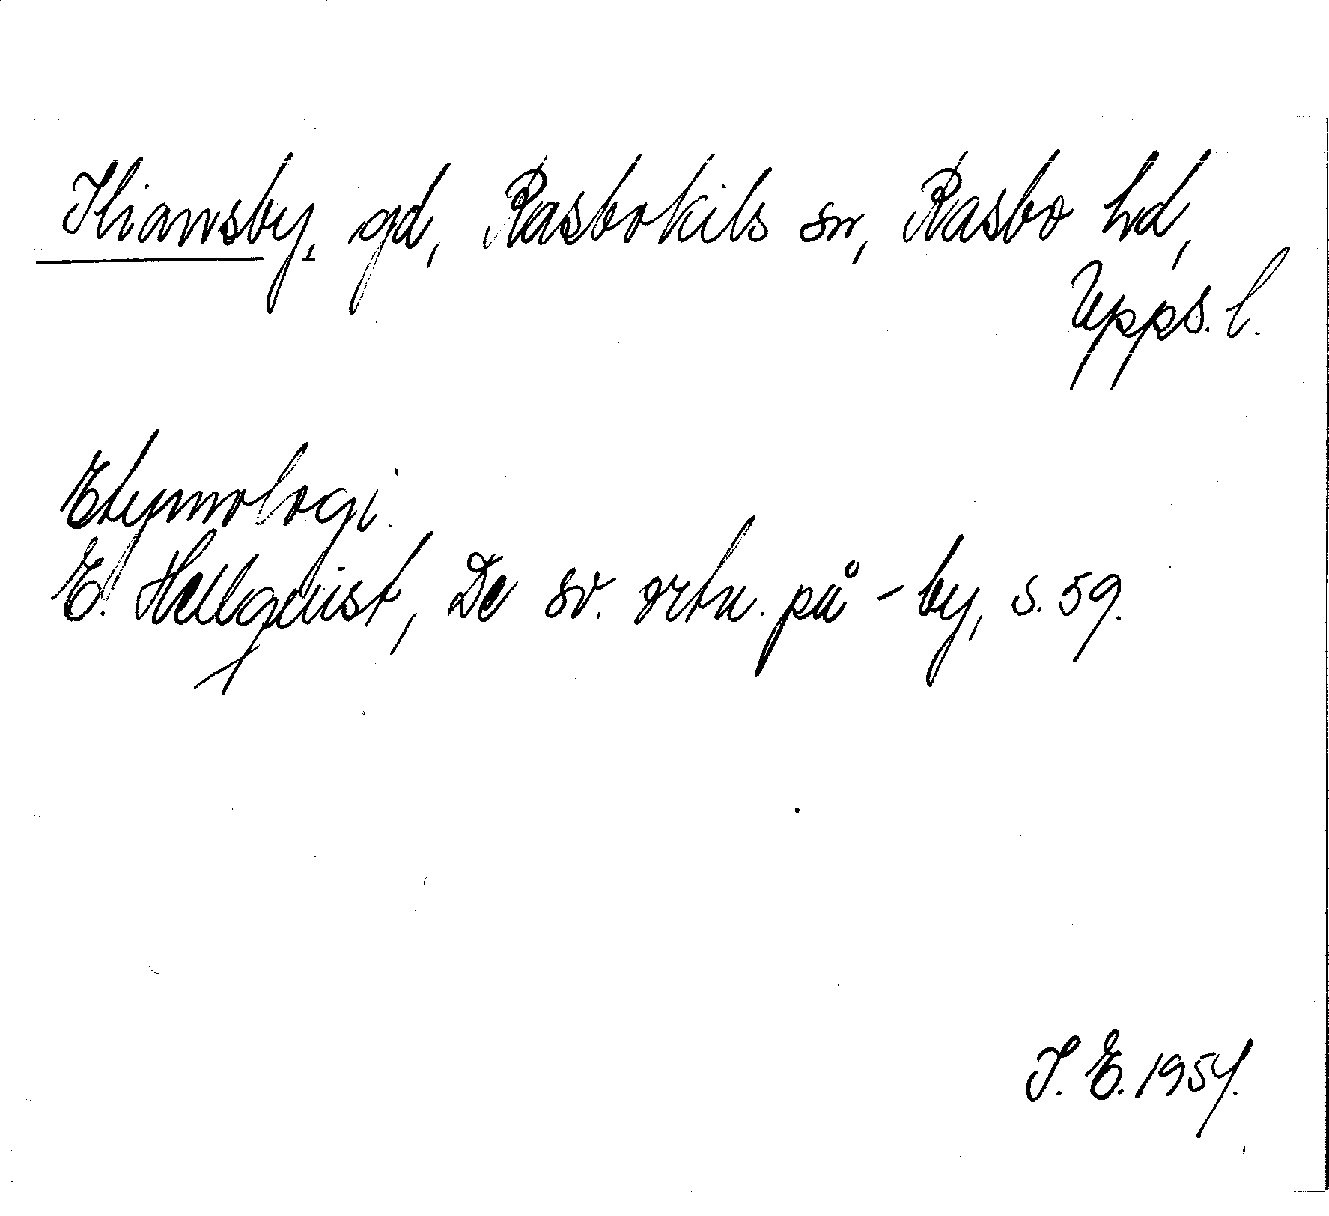 Iliansby, gd, Rasbokils sn, Rasbo hd,
Upps. l.
Etymologi.
E. Hellquist, De sv. ortn. på -by, s. 59.
I. E. 1954.